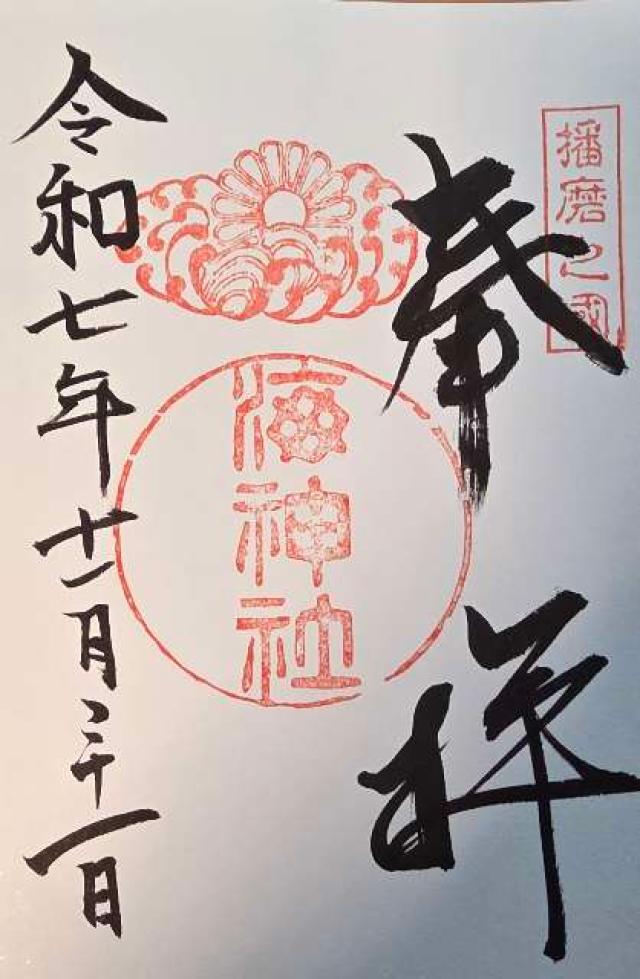 播磨之國
奉拝
海神社
令和七年十一月二十一日